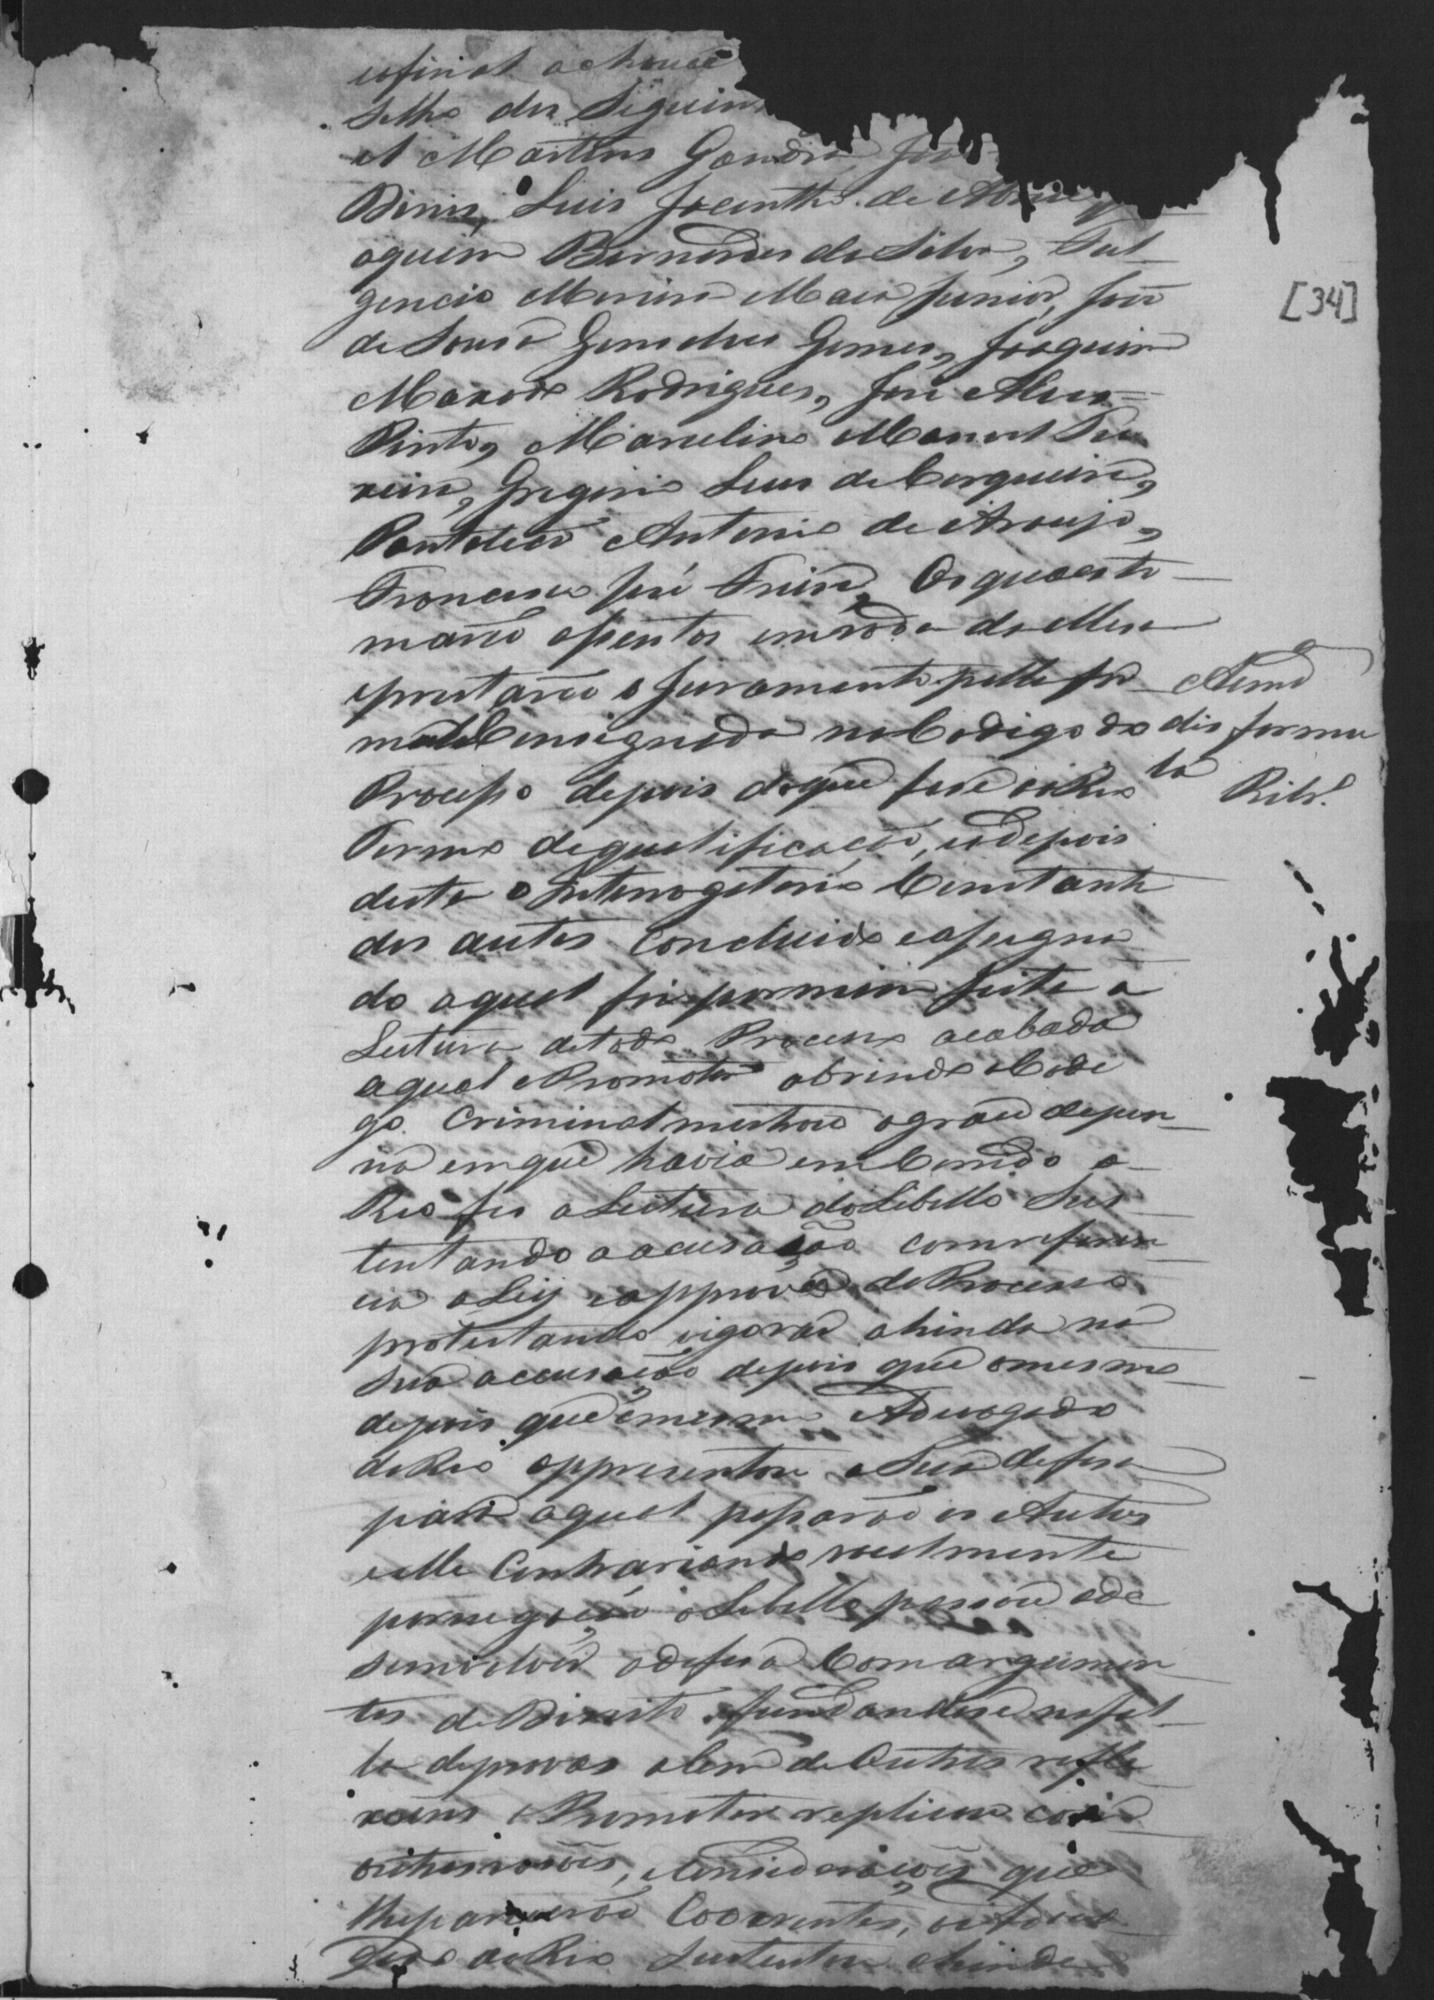 afinal achouse
selho dos Seguin
el Martins Gandra Joa
Dinis, Luis Jacintho de Abreu
aquim Bernardes da Silva, Ful-
gencio Maria Maia Junior, José
de Sousa Gonsalves Gomes, Joaquim
Manoel Rodrigues, José Alves
Pinto, Marcelino Manoel Fer
reira, Gregorio Luis de Cerqueira,
Pantaleaõ Antonio de Araujo,
Francisco José Freire, Os quaes to-
maraõ acentos em roda da Mesa
eprestaraõ o juramento pella fór-
mulla ensignada no Codigo do
Processo depois do que fesse ao Reo
Termo de qualificaçaõ, e depois
deste o Interrogatorio Constante
dos autos. Concluido e assigna
do aquel foi por mim feita a
Leitura de todo Processo acabada
aqual o Promotor abrindo o Codi
go Criminal mostrou o grau de pen-
na em que havia em Corrido o
Reo fes a Leitura do Libello Sus-
tentando a acusaçaõ com referen
cia a Ley e as provas do Processo
protestando vigorar ahinda na
Sua accusaçaõ depois que o mesmo
depois que o mesmo Advogado
do Reo appresentou a Sua defesa
para aqual passaraõ os Autos
e elle Contrariando realmente
por negaçaõ o Libello passou a de
senvolver a defesa Com argumen
tos de Direito fundandose na fal-
ta de provas alem de Outras refle
xoens o Promotor replicou com
outras rasoes, e Consideraçoes que
lhe pareceraõ Coherentes, e o Advo
gado do Reo Sustentou ahinda
[34]
Aemd
dis formu
la Ribr.º